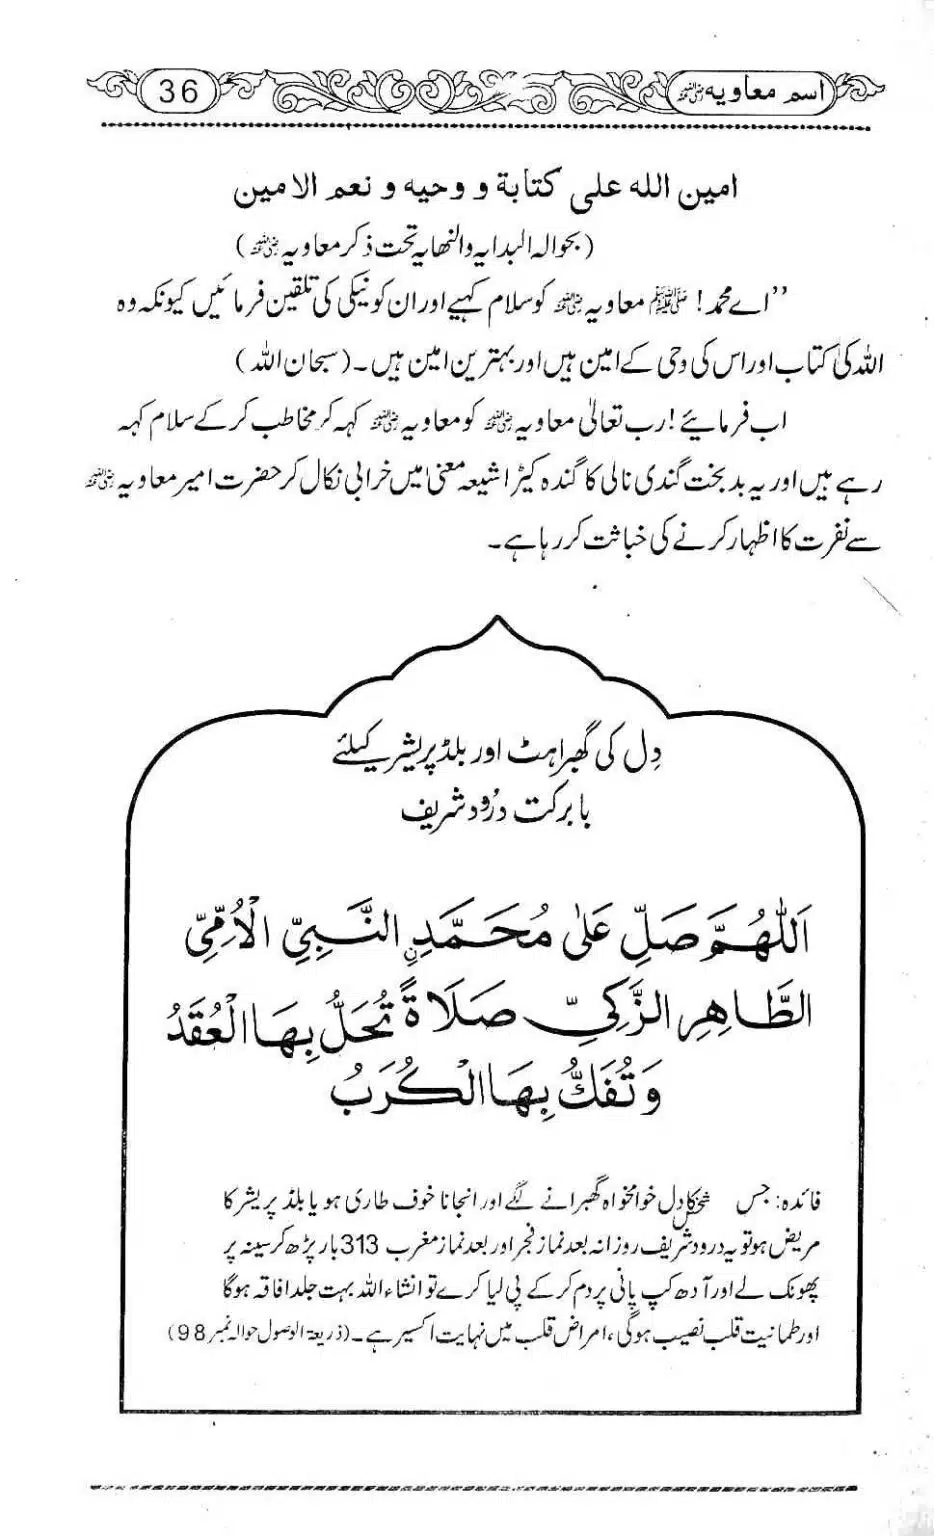 اسم معاویہ ؓ 36
امین اللہ علی کتابة و وحیه و نعم الامین
(بحوالہ البدایہ والنھایہ تحت ذکر معاویہ ؓ)
”اے محمد! ﷺ معاویہ ؓ کو سلام کہیے اور ان کو نیکی کی تلقین فرمائیں کیونکہ وہ
اللہ کی کتاب اور اس کی وحی کے امین ہیں اور بہترین امین ہیں۔ (سبحان اللہ)
اب فرمائیے! رب تعالیٰ معاویہ ؓ کو معاویہ ؓ کہہ کر مخاطب کر کے سلام کہہ
رہے ہیں اور یہ بدبخت گندی نالی کا گندہ کیڑا شیعہ معنی میں خرابی نکال کر حضرت امیر معاویہ ؓ
سے نفرت کا اظہار کرنے کی خباثت کر رہا ہے۔
دِل کی گھبراہٹ اور بلڈ پریشر کیلئے
بابرکت درُود شریف
اَللّٰهُمَّ صَلِّ عَلٰى مُحَمَّدِ نِ النَّبِيِّ الْاُمِّيِّ
الطَّاهِرِ الزَّكِيِّ صَلَاةً تُحَلُّ بِهَا الْعُقَدُ
وَتُفَكُّ بِهَا الْكُرَبُ
فائدہ: جس شخص کا دل خوامخواہ گھبرانے لگے اور انجانا خوف طاری ہو یا بلڈ پریشر کا
مریض ہو تو یہ درود شریف روزانہ بعد نماز فجر اور بعد نماز مغرب 313 بار پڑھ کر سینہ پر
پھونک لے اور آدھ کپ پانی پر دم کر کے پی لیا کرے تو انشاء اللہ بہت جلد افاقہ ہوگا
اور طمانیت قلب نصیب ہوگی، امراض قلب میں نہایت اکسیر ہے۔ (ذریعۃ الوصول حوالہ نمبر 98)